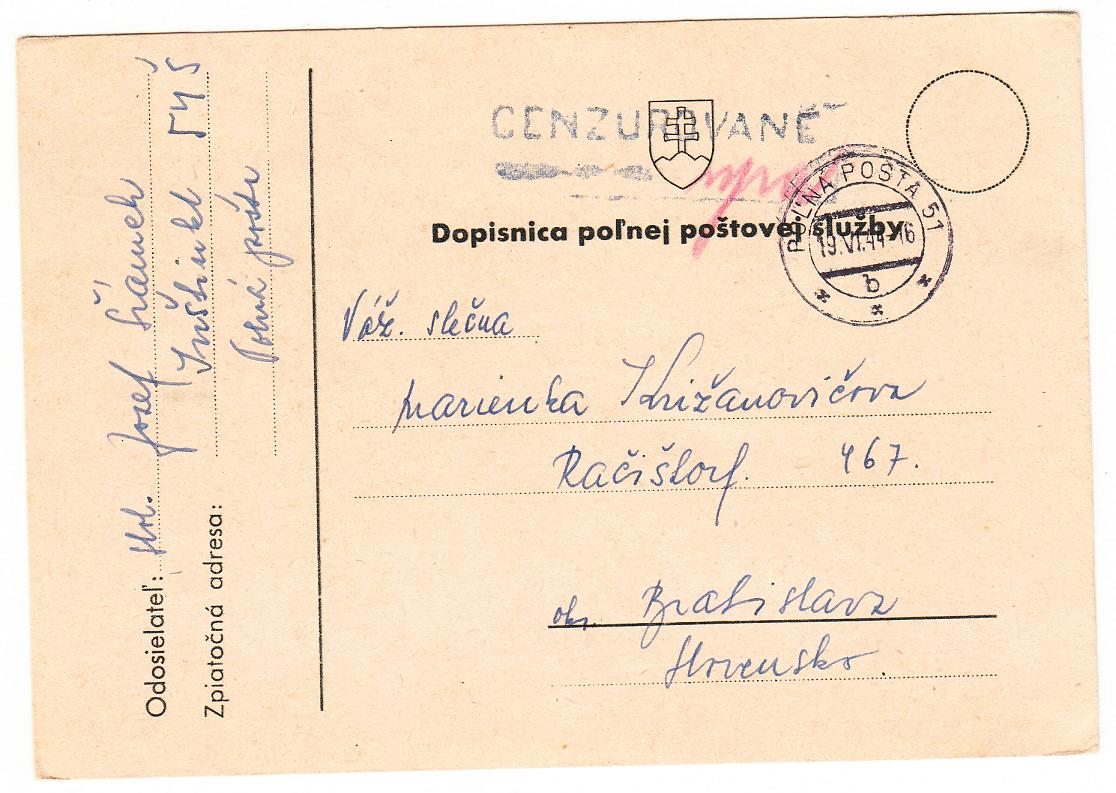 CENZUROVANÉ
Dopisnica poľnej poštovej služby
POĽNÁ POŠTA 51
19.VI.44-16
b
Odosielateľ: Jozef
Zpiatočná adresa:
545
Poľná pošta
Váž. slečna
Marienka Križanovičova
Račištorf. 467.
okr. Bratislava
Slovensko.